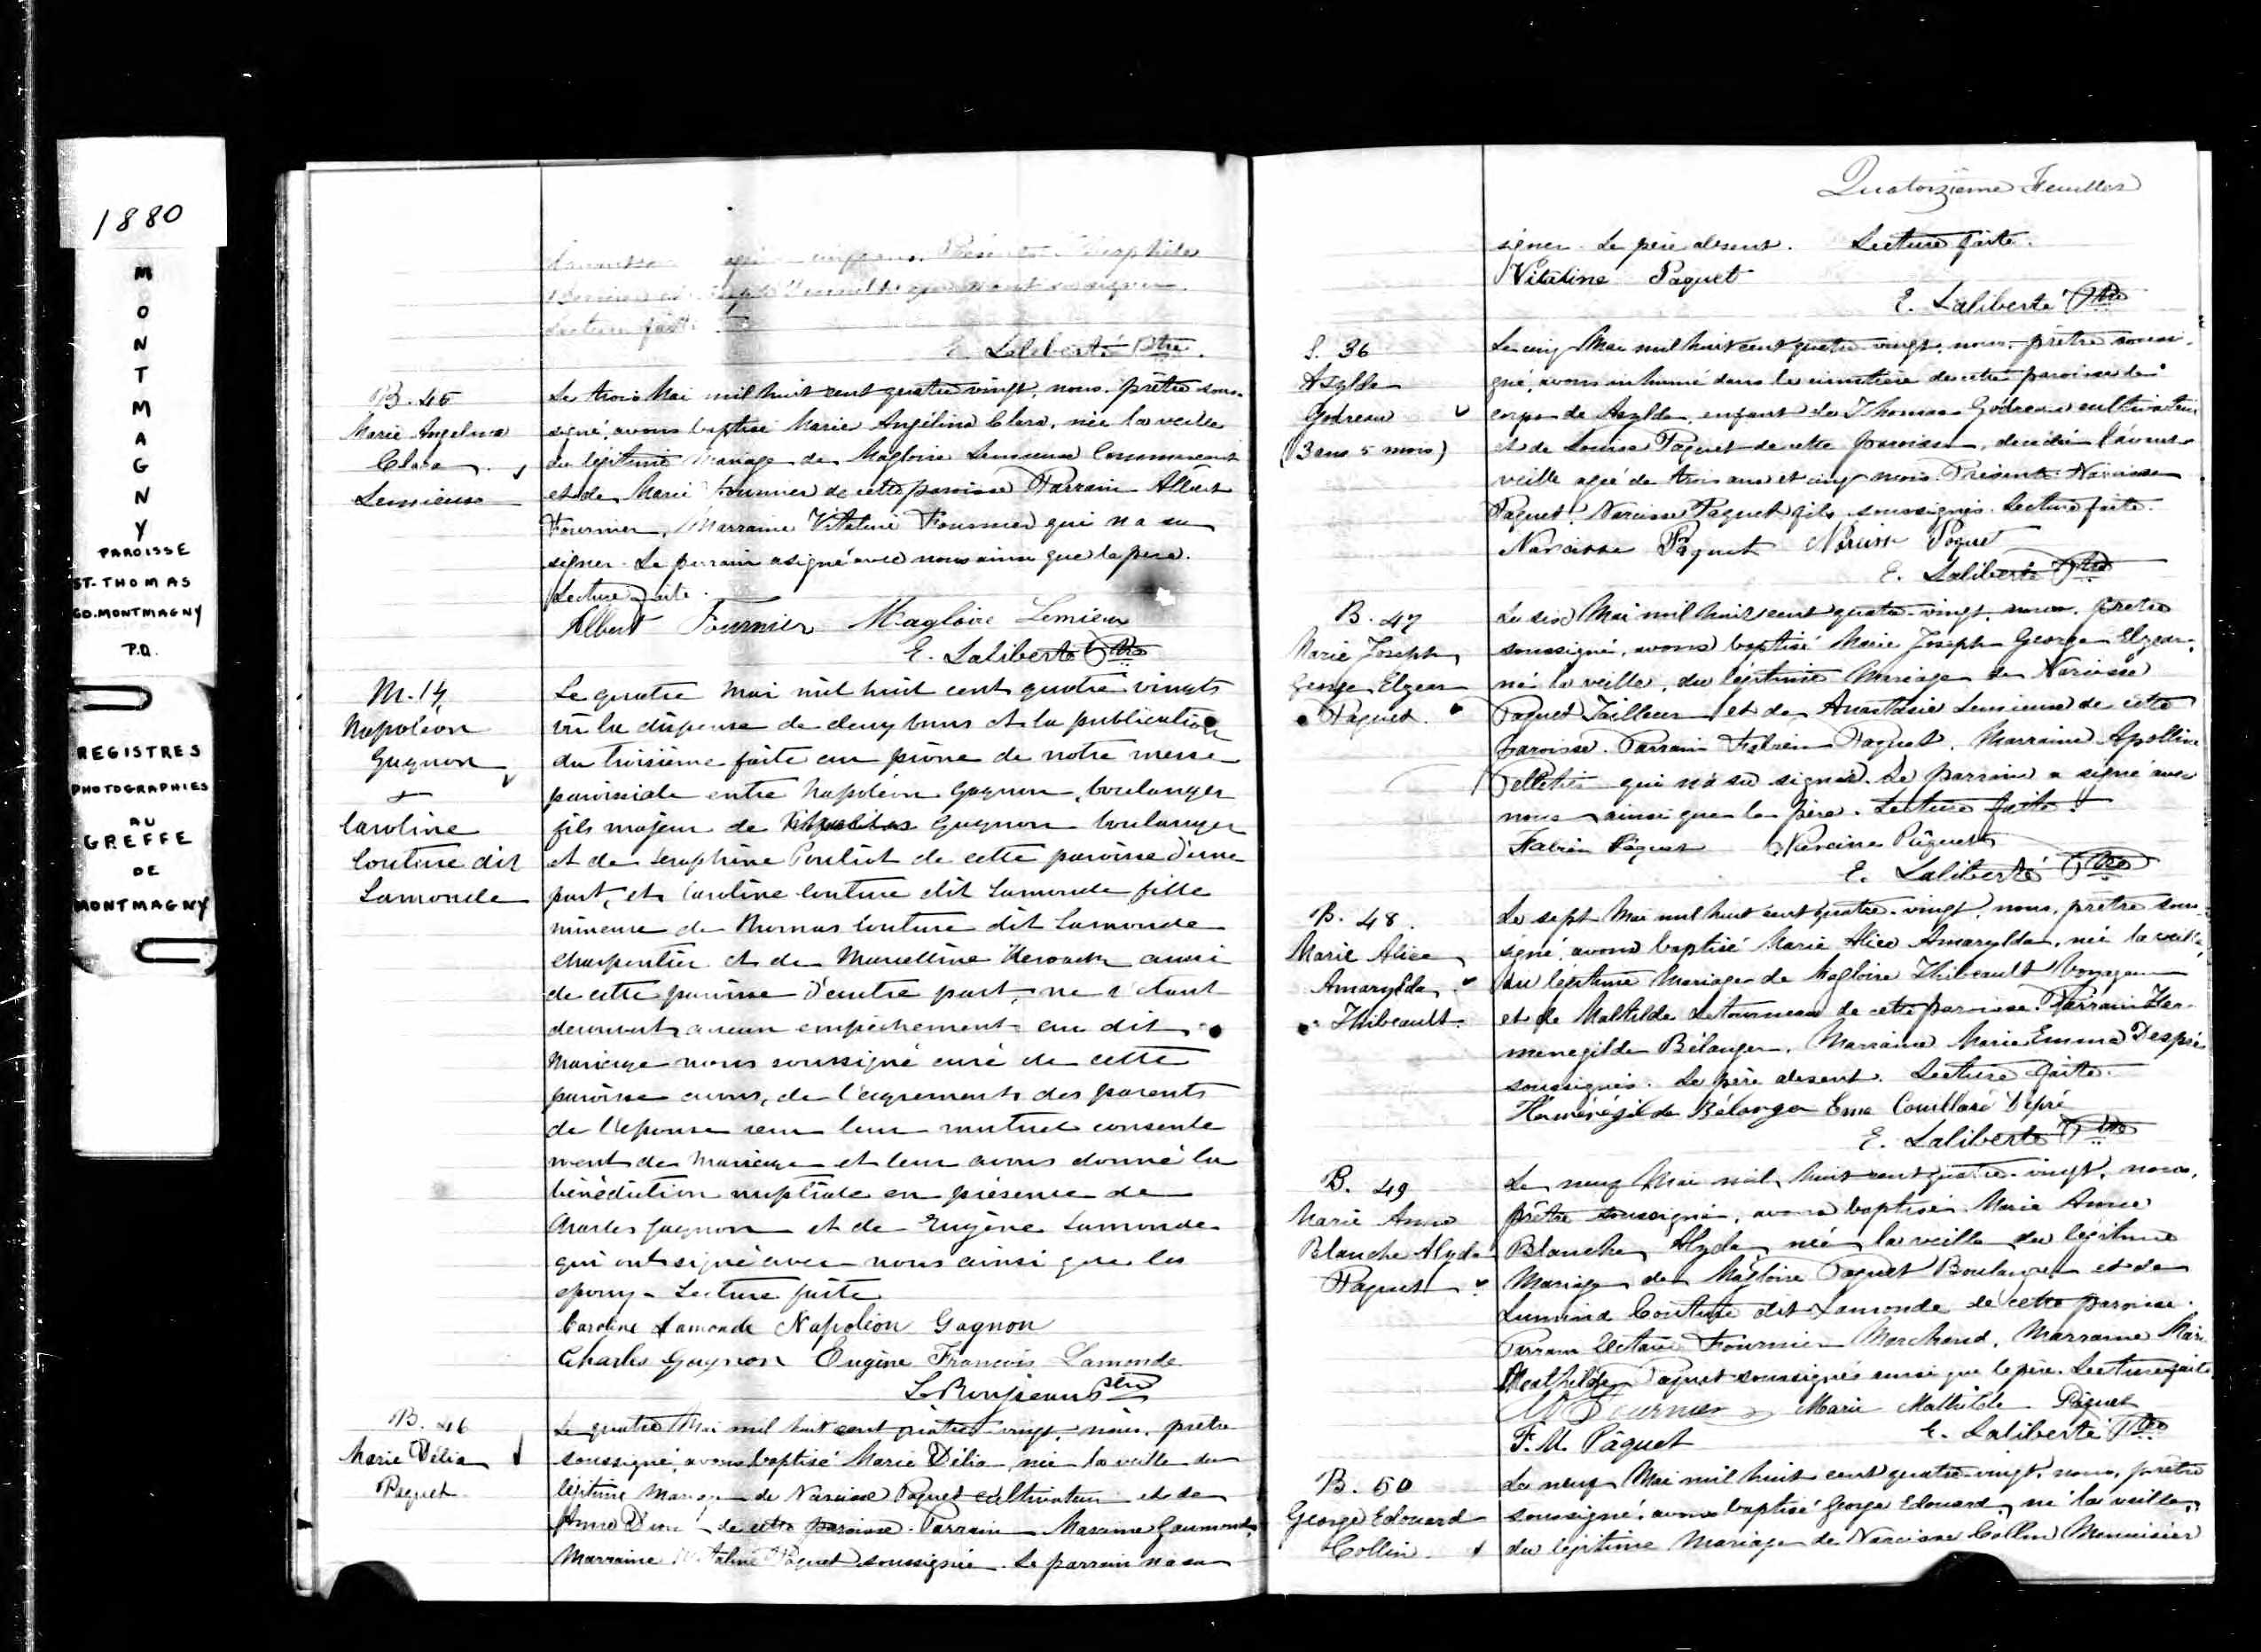 1880
MONTMAGNY
PAROISSE
ST. THOMAS
CO. MONTMAGNY
P.Q.
REGISTRES
PHOTOGRAPHIES
AU
GREFFE
DE
MONTMAGNY
signer.
Lecture faite
E. Laliberté Ptre.
B. 45
Marie Angelina
Clara
Lemieux
Le trois Mai mil huit cent quatre vingt, nous, prêtre sous-
signé, avons baptisé Marie Angélina Clara, née la veille
du légitime Mariage de Magloire Lemieux Commercant
et de Marie Fournier de cette paroisse Parrain Albert
Fournier, Marraine Vitaline Fournier qui n'a su
signer. Le parrain a signé avec nous ainsi que le pere.
Lecture faite.
Albert Fournier Magloire Lemieux
E. Laliberté Ptre
M. 14
Napoléon
Gagnon
+
Caroline
Couture dit
Lamonde
Le quatre Mai mil huit cent quatre vingts
vu la dispense de deux bans et la publication
du troisième faite au prône de notre messe
paroissiale entre Napoléon Gagnon, boulanger
fils majeur de Gagnon boulanger
et de Séraphine Pouliot de cette paroisse d'une
part, et Caroline Couture dit Lamonde fille
mineure de Thomas Couture dit Lamonde
charpentier et de Marcelline Kerouack aussi
de cette paroisse d'autre part, ne s'étant
découvert aucun empêchement au dit
mariage nous soussigné curé de cette
paroisse avons, de l'agrément des parents
de l'épouse reçu leur mutuel consente
ment de mariage et leur avons donné la
bénédiction nuptiale en présence de
Charles Gagnon et de Eugène Lamonde
qui ont signé avec nous ainsi que les
époux - Lecture faite
Caroline Lamonde Napoléon Gagnon
Charles Gagnon Eugène Francois Lamonde
Ptre
B. 46
Marie Délia
Paquet
Le quatre Mai mil huit cent quatre vingt, nous, prêtre
soussigné, avons baptisé Marie Délia, née la veille du
légitime Mariage de Narcisse Paquet cultivateur et de
Anna Dion de cette paroisse. Parrain Maxime Gaumond,
Marraine Vitaline Paquet soussignée. Le parrain n'a su
Quatorzième Feuillet
signer. Le père absent. Lecture faite.
Vitaline Paquet
E. Laliberté Ptre
S. 36
Azylda
Godreau
(3 ans 5 mois)
Le cinq Mai mil huit cent quatre-vingt, nous, prêtre soussi-
gné, avons inhumé dans le cimetière de cette paroisse le
corps de Azylda, enfant de Thomas Godreau cultivateur
et de Louise Paquet de cette paroisse, décédée l'avant-
veille agée de trois ans et cinq mois. Présents Narcisse
Paquet, Narcisse Paquet fils soussignés. Lecture faite.
Narcisse Paquet Narcisse Paquet
E. Laliberté Ptre
B. 47
Marie Joseph
George Elzear
Paquet.
Le six Mai mil huit cent quatre-vingt, nous, prêtre
soussigné, avons baptisé Marie Joseph George Elzear,
né la veille, du légitime Mariage de Narcisse
Paquet Tailleur et de Anastasie Lemieux de cette
paroisse. Parrain Fabien Paquet, Marraine Apolline
Pelletier qui n'a su signer. Le parrain a signé avec
nous ainsi que le père. Lecture faite.
Fabien Paquet Narcisse Pâquet
E. Laliberté Ptre
B. 48.
Marie Alice
Amarylda
Thibeault.
Le sept Mai mil huit cent quatre-vingt, nous, prêtre sous-
signé, avons baptisé Marie Alice Amarylda, née la veille,
du légitime Mariage de Magloire Thibeault Voyageur
et de Mathilde Letourneau de cette paroisse. Parrain Her-
menegilde Bélanger, Marraine Marie Emma Després
soussignés. Le père absent. Lecture faite.
Herménégilde Bélanger Ema Couillard Dépré
E. Laliberté Ptre
B. 49
Marie Anna
Blanche Alyda
Paquet
Le neuf Mai mil huit cent quatre-vingt, nous,
prêtre soussigné, avons baptisé Marie Anna
Blanche Alyda, née la veille du légitime
Mariage de Magloire Paquet Boulanger et de
Lumina Couture dit Lamonde de cette paroisse.
Parrain Fournier Marchand, Marraine Marie
Mathilde Paquet soussignés ainsi que le père. Lecture faite
Fournier Marie Mathilde Pâquet
F. M. Pâquet E. Laliberté Ptre
B. 50
George Edouard
Collin
Le neuf Mai mil huit cent quatre-vingt, nous, prêtre
soussigné, avons baptisé George Edouard, né la veille,
du légitime Mariage de Narcisse Collin Menuisier